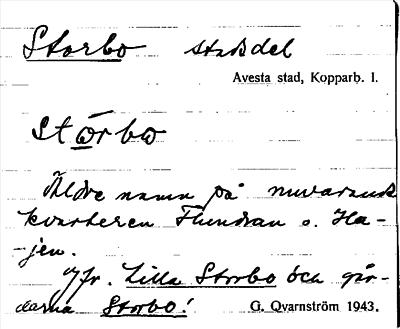 Storbo stadsdel
Avesta stad, Kopparb. l.
Störbo
Äldre namn på nuvarande
kvarteren Flundran o. Ha-
-jen.
Jfr. Lilla Storbo och går-
darna Storbo!
G. Qvarnström 1943.